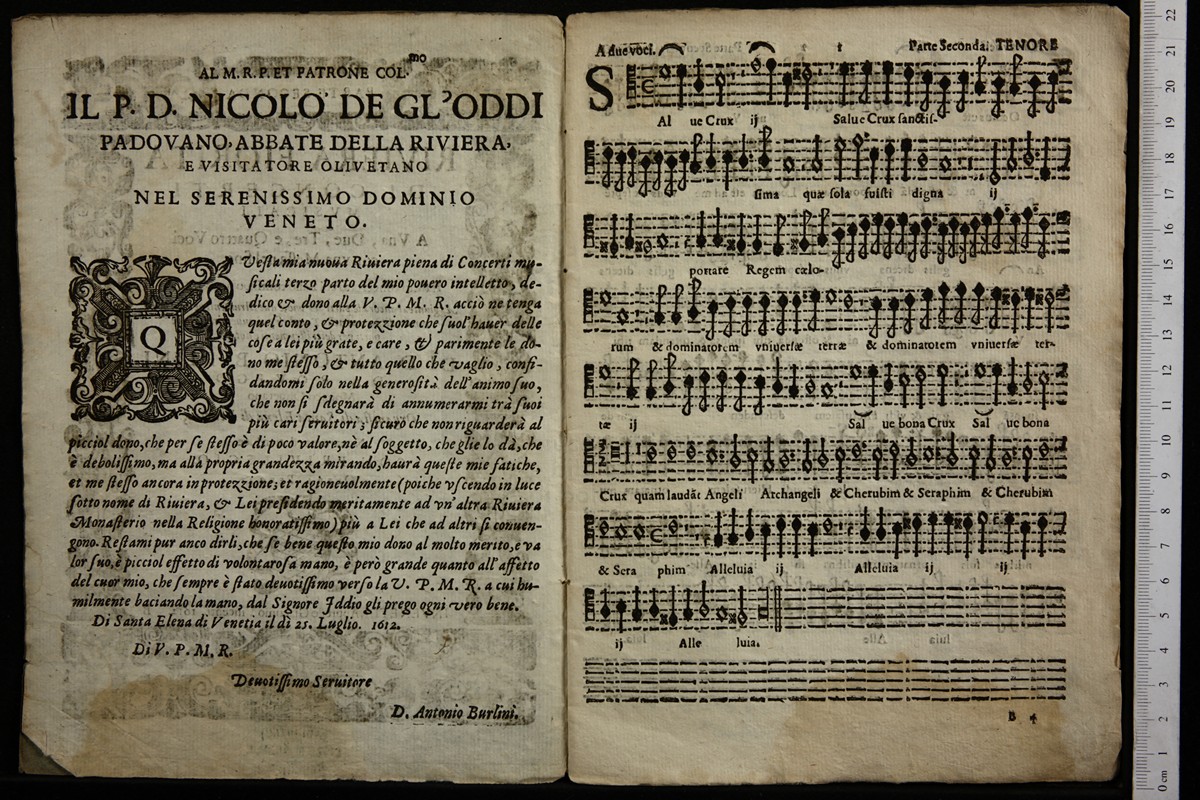 AL M. R. P. ET PATRONE COL.mo
IL P. D. NICOLO' DE GL'ODDI
PADOVANO, ABBATE DELLA RIVIERA,
E VISITATORE OLIVETANO
NEL SERENISSIMO DOMINIO
VENETO.
QVesta mia nuoua Riuiera piena di Concerti mu-
sicali terzo parto del mio pouero intelletto, de-
dico & dono alla V. P. M. R. acciò ne tenga
quel conto, & protezzione che suol'hauer delle
cose a lei più grate, e care, & parimente le do-
no me stesso, & tutto quello che vaglio, confi-
dandomi solo nella generosità dell'animo suo,
che non si sdegnarà di annumerarmi trà suoi
più cari seruitori; sicuro che non riguarderà al
picciol dono, che per se stesso è di poco valore, nè al soggetto, che glie lo dà, che
è debolissimo, ma alla propria grandezza mirando, haurà queste mie fatiche,
et me stesso ancora in protezzione; et ragioneuolmente (poiche vscendo in luce
sotto nome di Riuiera, & Lei presidendo meritamente ad vn'altra Riuiera
Monasterio nella Religione honoratissimo) più a Lei che ad altri si conuen-
gono. Restami pur anco dirli, che se bene questo mio dono al molto merito, e va
lor suo, è picciol effetto di volontarosa mano, è però grande quanto all'affetto
del cuor mio, che sempre è stato deuotissimo verso la V. P. M. R. a cui hu-
milmente baciando la mano, dal Signore Iddio gli prego ogni vero bene.
Di Santa Elena di Venetia il dì 25. Luglio. 1612.
Di V. P. M. R.
Deuotissimo Seruitore
D. Antonio Burlini.
A due voci. Parte Seconda. TENORE
S
Al ue Crux ij Salue Crux sanctis-
sima quæ sola fuisti digna ij
portare Regem cælo-
rum & dominatorem vniuersæ terræ & dominatorem vniuersæ ter-
ræ ij Sal ue bona Crux Sal ue bona
Crux quam laudãt Angeli Archangeli & Cherubim & Seraphim & Cherubim
& Sera phim Alleluia ij Alleluia ij ij
ij Alle luia.
B 4
22
21
20
19
18
17
16
15
14
13
12
11
10
9
8
7
6
5
4
3
2
1
0 cm